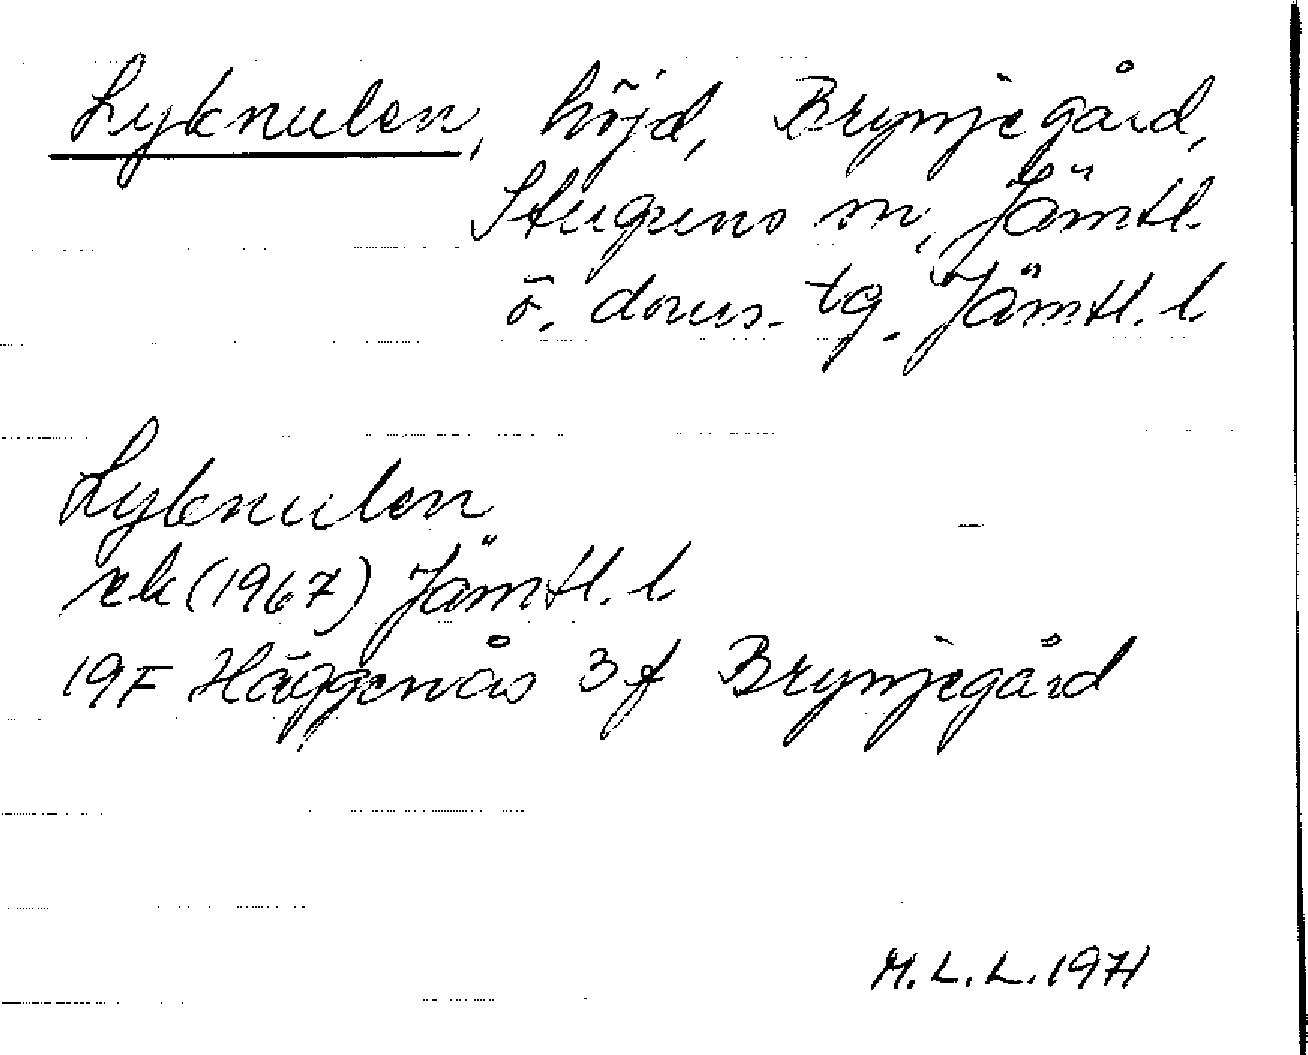 Lyknulen, höjd, Brynjegård,
Stuguns sn, Jämtl.
ö. doms. tg. Jämtl. l
Lyknulen
rek (1967) Jämtl. l
19F Häggenås 3f Brynjegård
M.L.L. 1971